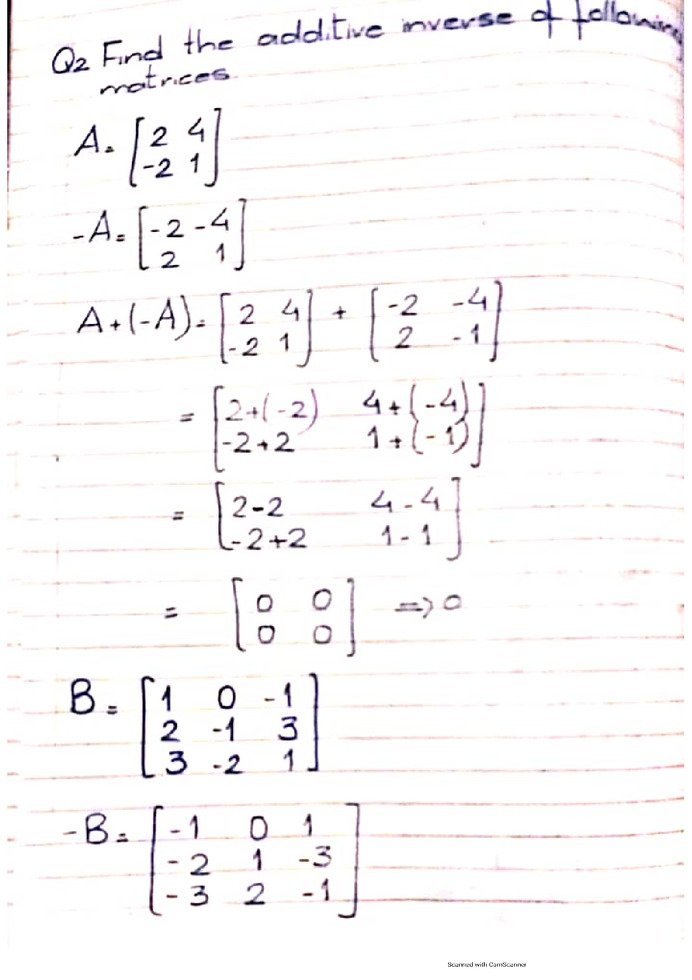 Q2 Find the additive inverse of following
matrices.
A = [2 4
-2 1]
-A = [-2 -4
2 1]
A+(-A) = [2 4
-2 1] + [-2 -4
2 -1]
= [2+(-2) 4+(-4)
-2+2 1+(-1)]
= [2-2 4-4
-2+2 1-1]
= [0 0
0 0] => 0
B = [1 0 -1
2 -1 3
3 -2 1]
-B = [-1 0 1
-2 1 -3
-3 2 -1]
Scanned with CamScanner